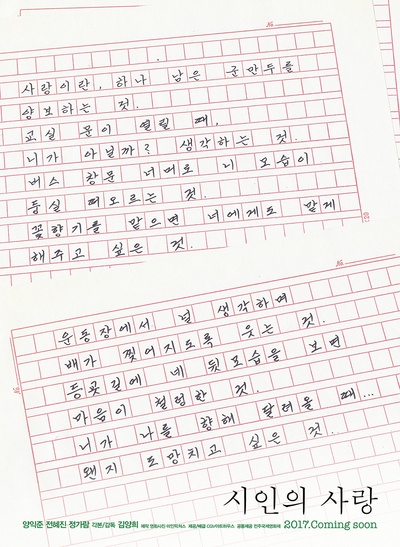 사랑이란, 하나 남은 군만두를
양보하는 것.
교실 문이 열릴 때,
니가 아닐까? 생각하는 것.
버스 창문 너머로 니 모습이
둥실 떠오르는 것.
꽃향기를 맡으면 너에게도 맡게
해주고 싶은 것.
운동장에서 널 생각하며
배가 찢어지도록 웃는 것.
등굣길에 네 뒷모습을 보면
마음이 철렁한 것.
니가 나를 향해 달려올 때...
왠지 도망치고 싶은 것.
시인의 사랑
양익준 전혜진 정가람 각본/감독 김양희 제작 영화사진 미인픽쳐스 제공/배급 CGV아트하우스 공동제공 전주국제영화제 2017.Coming soon